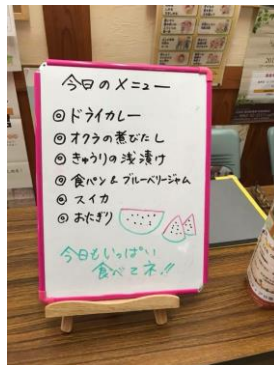 今日のメニュー
◎ドライカレー
◎オクラの煮びたし
◎きゅうりの浅漬け
◎食パン&ブルーベリージャム
◎スイカ
◎おにぎり
今日もいっぱい
食べてネ!!